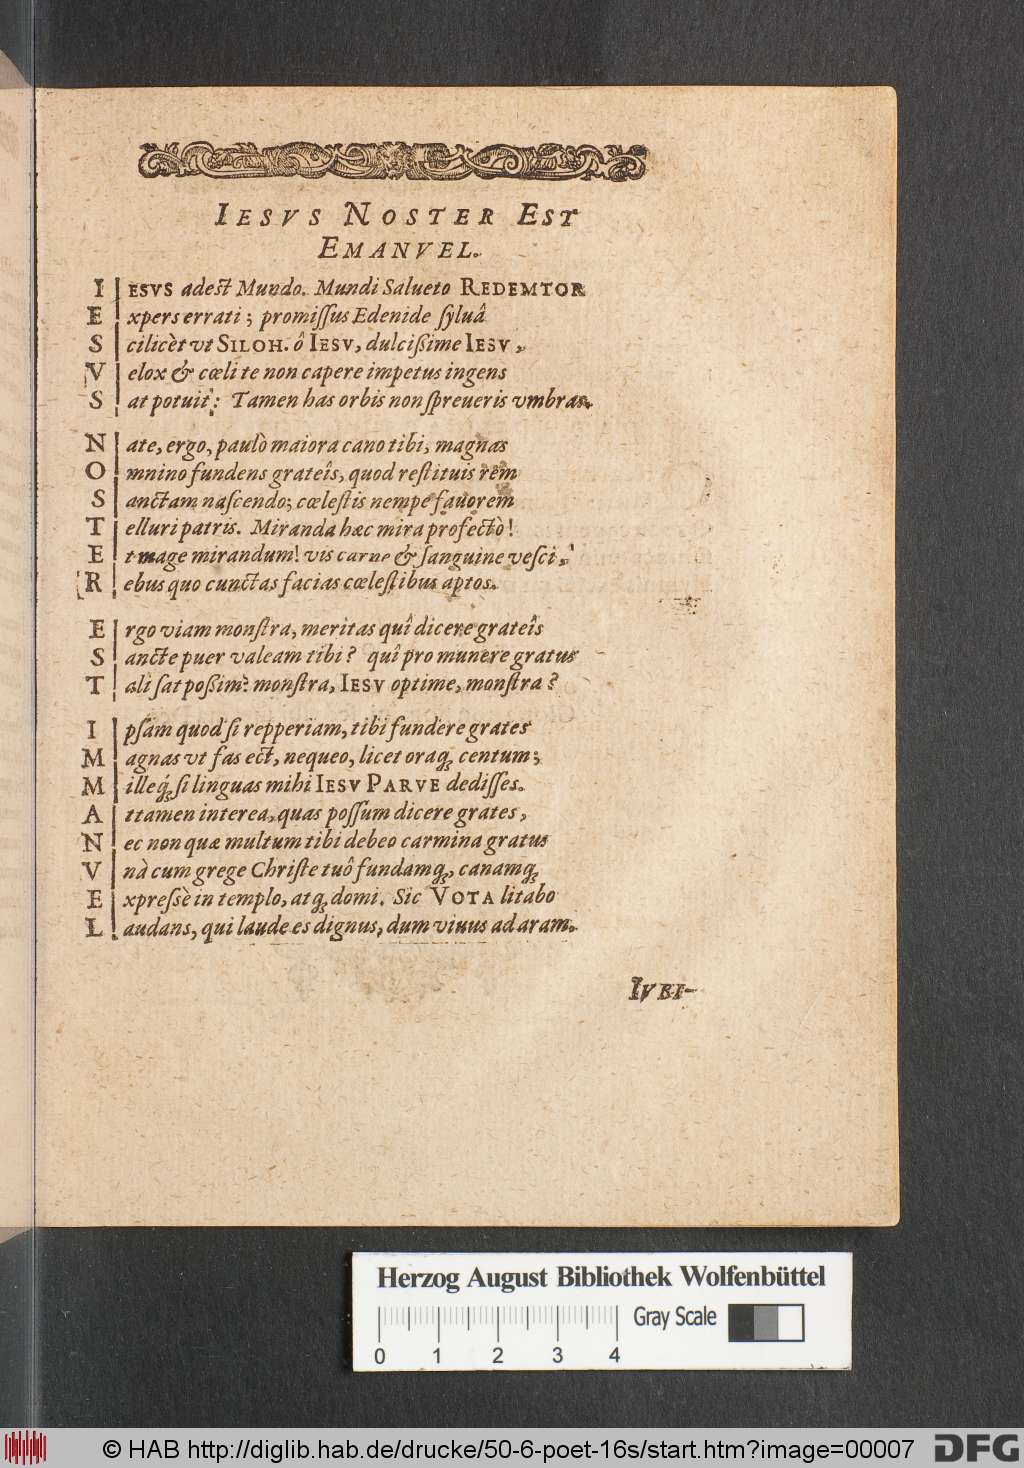 IESVS NOSTER EST
EMANVEL.
I ESVS adest Mundo. Mundi Salueto REDEMTOR
E xpers errati; promissus Edenide syluâ
S cilicèt vt SILOH. ô IESV, dulcißime IESV,
V elox & cœli te non capere impetus ingens
S at potuit: Tamen has orbis non spreueris vmbras.
N ate, ergo, paulò maiora cano tibi, magnas
O mnino fundens grateîs, quod restituis rem
S anctam nascendo; cœlestis nempe fauorem
T elluri patris. Miranda hæc mira profectò!
E t mage mirandum! vis carne & sanguine vesci,
R ebus quo cunctas facias cœlestibus aptos.
E rgo viam monstra, meritas quî dicere grateîs
S ancte puer valeam tibi? quî pro munere gratus
T ali sat poßim: monstra, IESV optime, monstra?
I psam quod si repperiam, tibi fundere grates
M agnas vt fas ect, nequeo, licet oraq; centum;
M illeq́; si linguas mihi IESV PARVE dedisses.
A ttamen interea, quas possum dicere grates,
N ec non quæ multum tibi debeo carmina gratus
V nà cum grege Christe tuô fundamq;, canamq;
E xpressè in templo, atq; domi. Sic VOTA litabo
L audans, qui laude es dignus, dum viuus ad aram.
IVBI-
Herzog August Bibliothek Wolfenbüttel
Gray Scale
0 1 2 3 4
© HAB http://diglib.hab.de/drucke/50-6-poet-16s/start.htm?image=00007
DFG